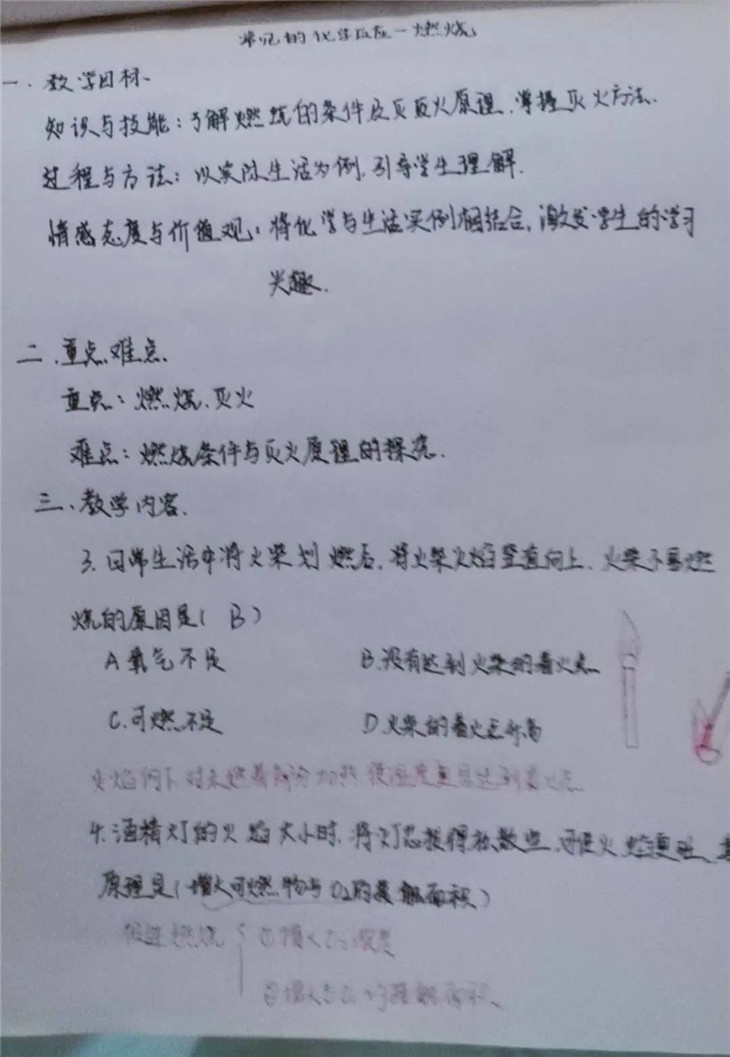 常见的化学反应-燃烧
一.教学目标.
知识与技能:了解燃烧的条件及灭火原理.掌握灭火方法.
过程与方法:以实际生活为例,引导学生理解.
情感态度与价值观:将化学与生活实例相结合,激发学生的学习
兴趣.
二.重点.难点.
重点:燃烧.灭火
难点:燃烧条件与灭火原理的探究.
三、教学内容.
3.日常生活中将火柴划燃后,将火柴火焰竖直向上.火柴不易燃
烧的原因是( B )
A氧气不足
B.没有达到火柴的着火点
C.可燃不足
D火柴的着火点升高
火焰向下对未燃着部分加热使温度更易达到着火点
4.酒精灯的火焰太小时.将灯芯拔得松散些.可使火焰更旺.其
原理是(增大可燃物与O2的接触面积)
促进燃烧
①增大O2浓度
②增大与O2的接触面积